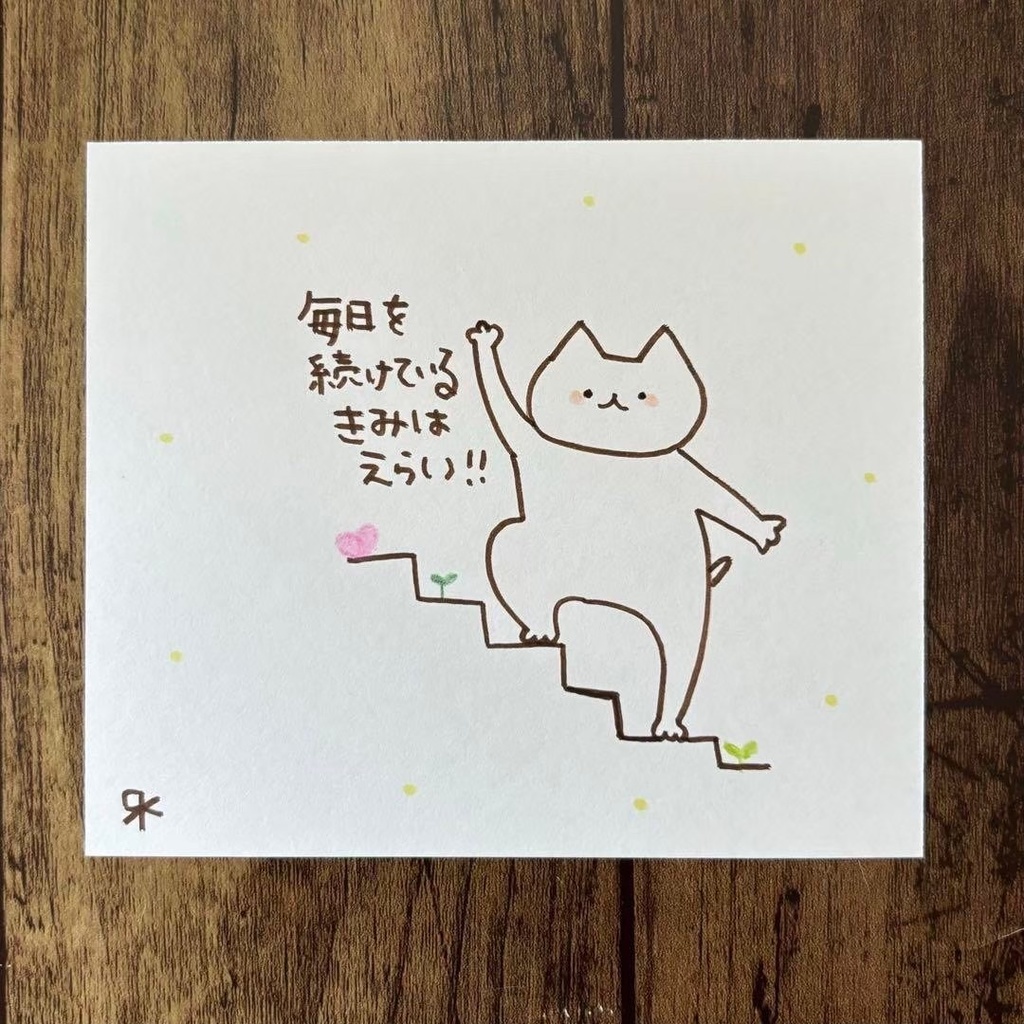 毎日を
続けている
きみは
えらい!!